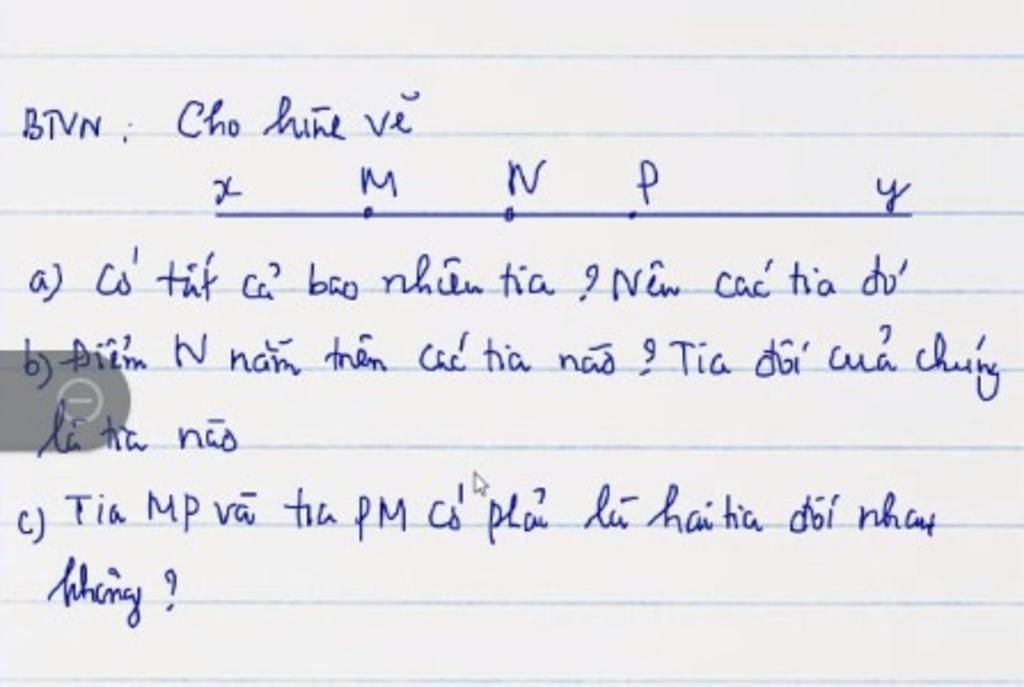 BTVN: Cho hình vẽ
x M N P y
a) Có tất cả bao nhiêu tia? Nêu các tia đó
b) Điểm N nằm trên các tia nào? Tia đối của chúng
là tia nào
c) Tia MP và tia PM có phải là hai tia đối nhau
không?